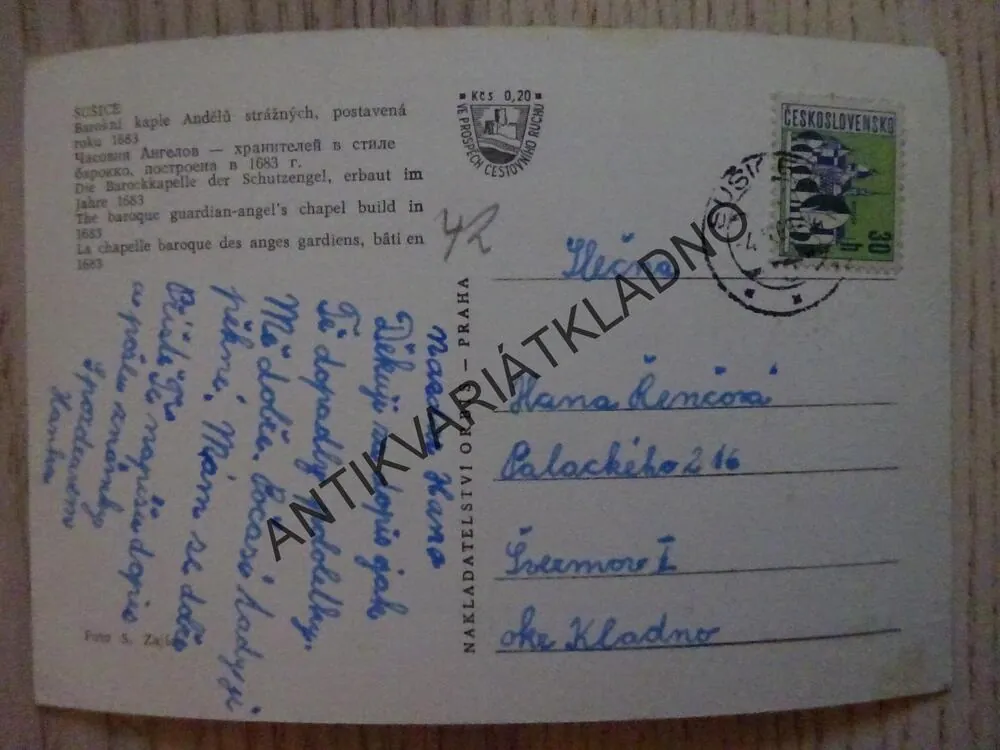 SUŠICE
Barokní kaple Andělů strážných, postavená
roku 1683
Часовня Ангелов — хранителей в стиле
барокко, построена в 1683 г.
Die Barockkapelle der Schutzengel, erbaut im
Jahre 1683
The baroque guardian-angel's chapel build in
1683
La chapelle baroque des anges gardiens, bâti en
1683
Kčs 0,20
VE PROSPĚCH CESTOVNÍHO RUCHU
ČESKOSLOVENSKO
30 h
SUŠICE
42
Hano
Děkuji dopis jak
Tě dopadly
Mě dobře. Počasí tady je
pěkné. Mám se dobře
Příště Ti napíšu dopis
a pošlu známky
S pozdravem
Hanka
Foto S.
NAKLADATELSTVÍ ORBIS — PRAHA
Slečna
Hana Řenčová
Palackého 216
Švermov I
okr Kladno
ANTIKVARIÁTKLADNO